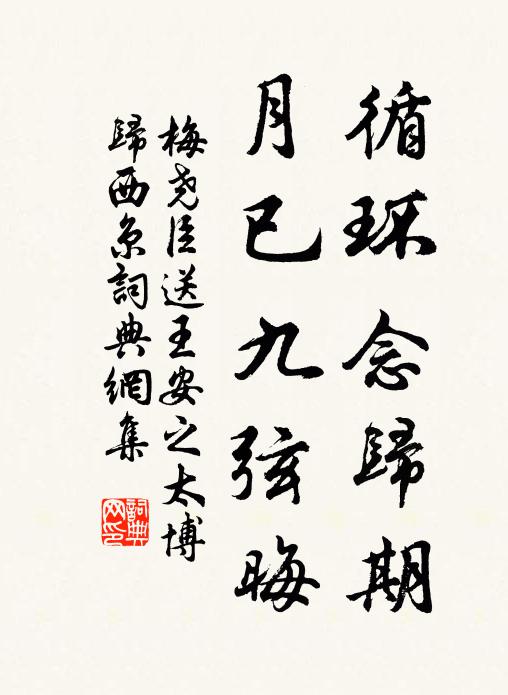 循环念歸期
月已九弦晦
梅尧臣送王安之太博
歸西京詞典網集
詞典网印